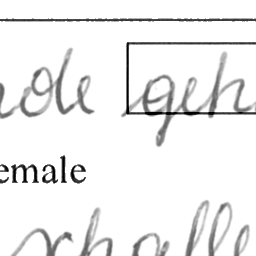 ode geh
emale
schalle